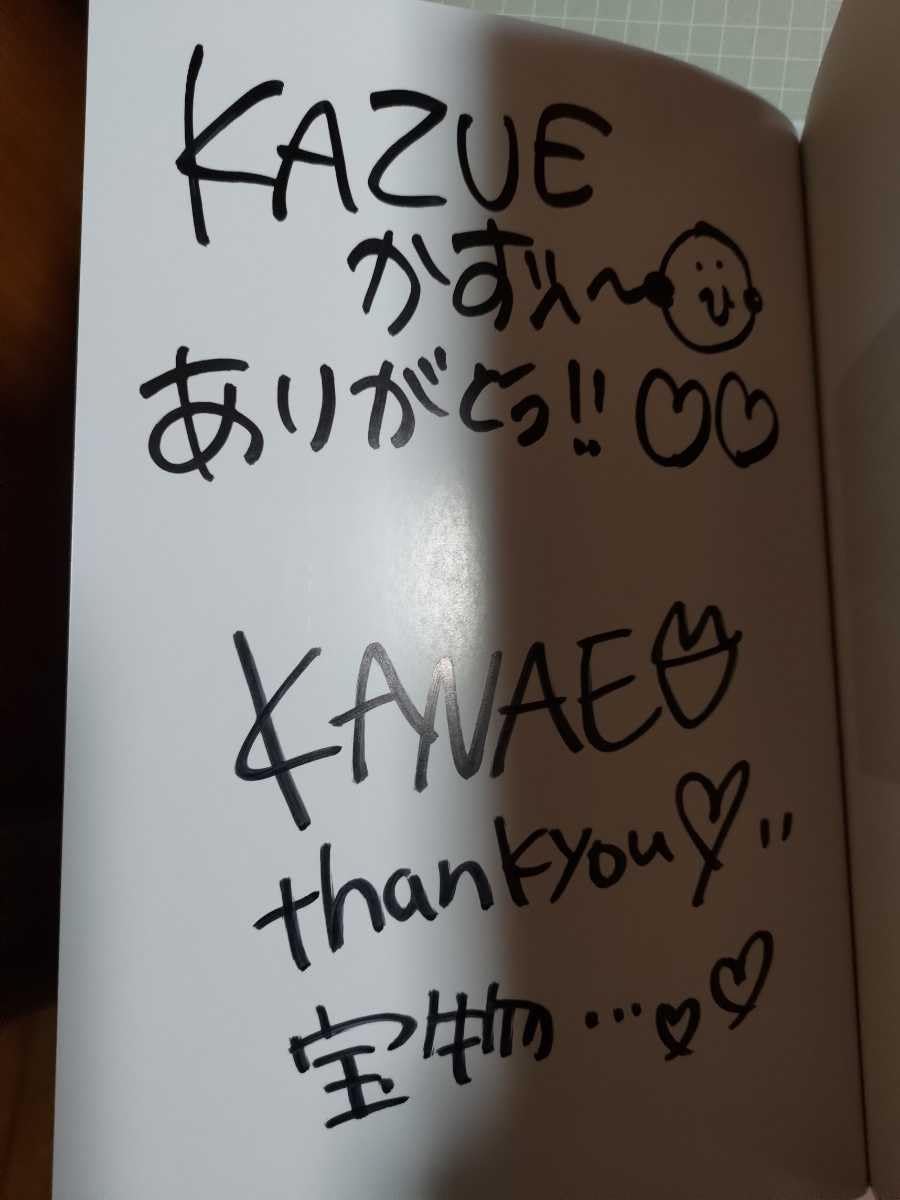 KAZUE
かずえ〜
ありがとっ!! ♡♡
KANAE
thankyou♡"
宝物…♡♡